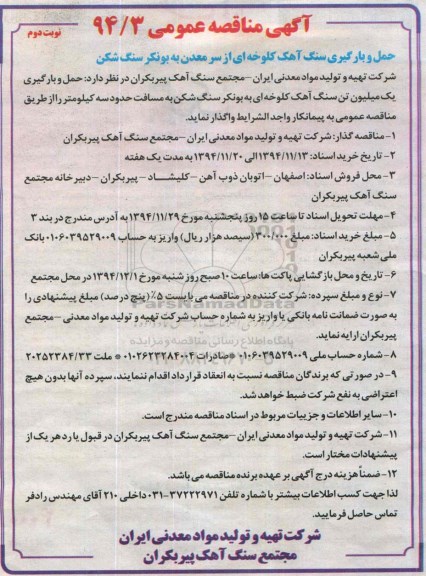 آگهی مناقصه عمومی ۹۴/۳
نوبت دوم
حمل و بارگیری سنگ آهک کلوخه ای از سر معدن به بونکر سنگ شکن
شرکت تهیه و تولید مواد معدنی ایران -مجتمع سنگ آهک پیربکران در نظر دارد: حمل و بارگیری
یک میلیون تن سنگ آهک کلوخه ای به بونکر سنگ شکن به مسافت حدود سه کیلومتر را از طریق
مناقصه عمومی به پیمانکار واجد الشرایط واگذار نماید.
۱- مناقصه گذار: شرکت تهیه و تولید مواد معدنی ایران -مجتمع سنگ آهک پیربکران
۲- تاریخ خرید اسناد: ۱۳۹۴/۱۱/۱۳ الی ۱۳۹۴/۱۱/۲۰ به مدت یک هفته
۳- محل فروش اسناد: اصفهان -اتوبان ذوب آهن -کلیشاد - پیربکران -دبیرخانه مجتمع
سنگ آهک پیربکران
۴- مهلت تحویل اسناد تا ساعت ۱۵ روز پنجشنبه مورخ ۱۳۹۴/۱۱/۲۹ به آدرس مندرج در بند ۳
۵- مبلغ خرید اسناد: مبلغ ۳۰۰/۰۰۰ (سیصد هزار ریال) واریز به حساب ۰۱۰۶۰۳۹۵۲۹۰۰۹ بانک
ملی شعبه پیربکران
۶- تاریخ و محل بازگشایی پاکت ها: ساعت ۱۰ صبح روز شنبه مورخ ۱۳۹۴/۱۲/۱ در محل مجتمع
۷- نوع و مبلغ سپرده: شرکت کننده در مناقصه می بایست ۵٪ (پنج درصد) مبلغ پیشنهادی را
به صورت ضمانت نامه بانکی یا واریز به شماره حساب شرکت تهیه و تولید مواد معدنی -مجتمع
پیربکران ارایه نماید.
۸- شماره حساب ملی ۰۱۰۶۰۳۹۵۲۹۰۰۹ *صادرات ۰۱۰۲۶۲۳۲۸۴۰۰۴ * ملت ۲۰۲۵۲۳۸۴/۳۳
۹- در صورتی که برندگان مناقصه نسبت به انعقاد قرارداد اقدام ننمایند، سپرده آنها بدون هیچ
اعتراضی به نفع شرکت ضبط خواهد شد.
۱۰- سایر اطلاعات و جزییات مربوط در اسناد مناقصه مندرج است.
۱۱- شرکت تهیه و تولید مواد معدنی ایران -مجتمع سنگ آهک پیربکران در قبول یا رد هر یک از
پیشنهادات مختار است.
۱۲- ضمناً هزینه درج آگهی بر عهده برنده مناقصه می باشد.
لذا جهت کسب اطلاعات بیشتر با شماره تلفن ۳۷۲۲۲۹۷۱-۰۳۱ داخلی ۲۱۰ آقای مهندس رادفر
تماس حاصل فرمایید.
شرکت تهیه و تولید مواد معدنی ایران
مجتمع سنگ آهک پیربکران